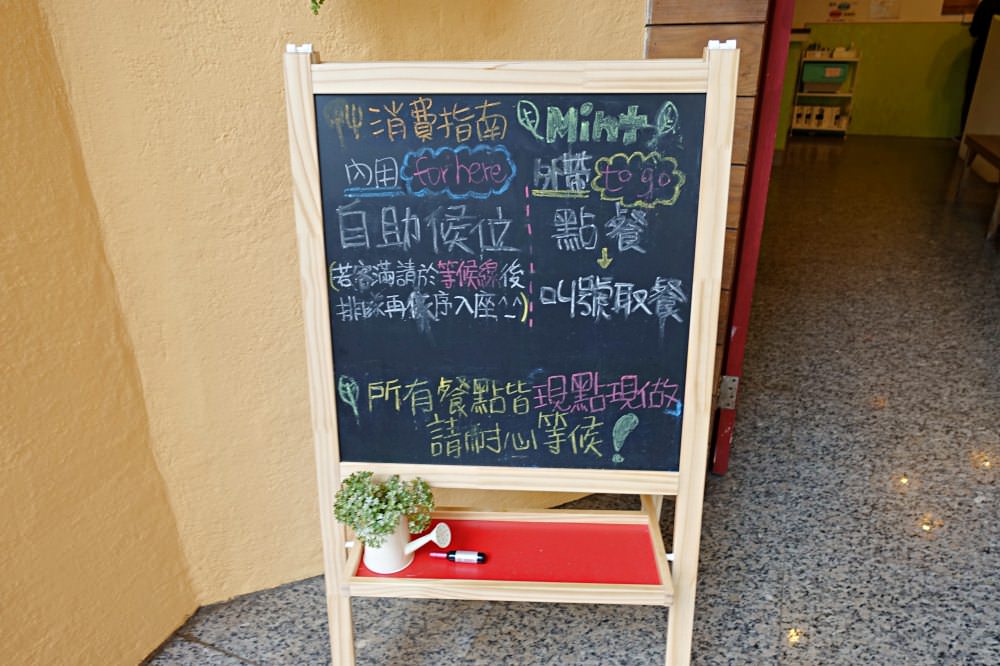 消費指南 Mint
內用 for here
自助候位
(若客滿請於等候線後
排隊再依序入座^_^)
外帶 to go
點餐
↓
叫號取餐
所有餐點皆現點現做
請耐心等候!